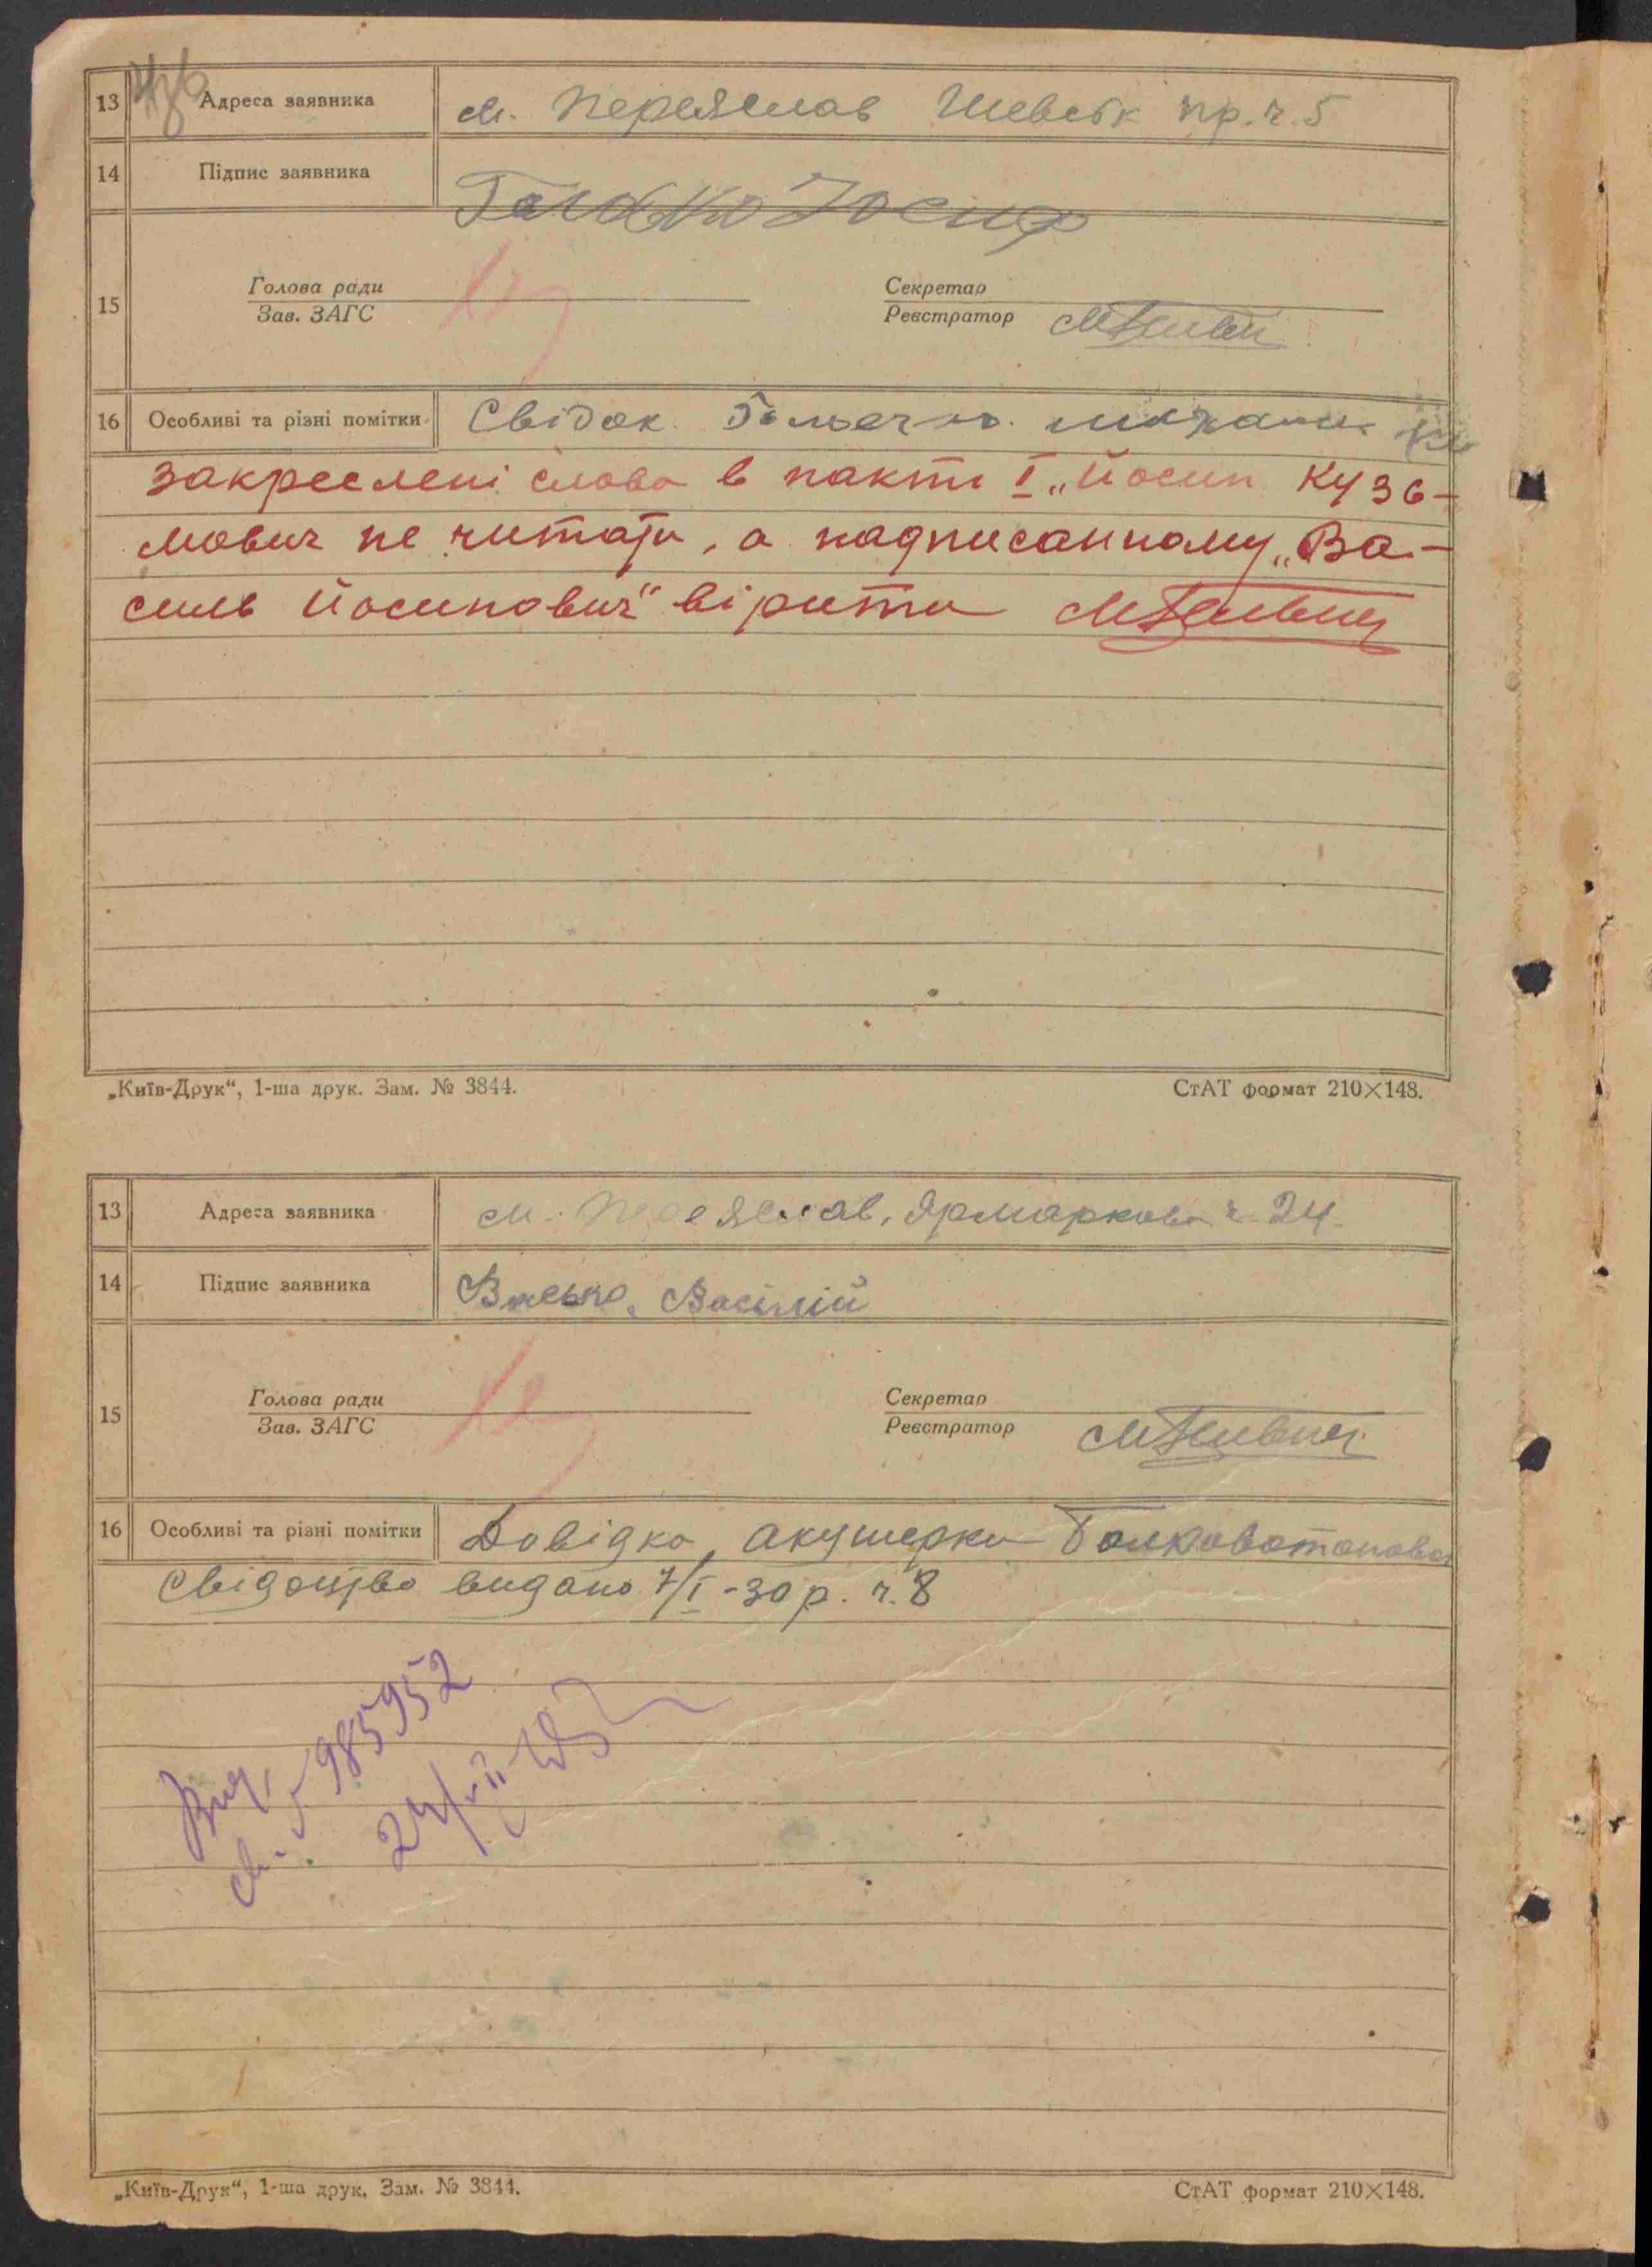 13 Адреса заявника м. Переяслав Шевськ пр. ч. 5
14 Підпис заявника Йосип
15 Голова ради
Зав. ЗАГС
Секретар
Реєстратор
16 Особливі та різні помітки Свідок
закреслені слова в пакті I „Йосип Кузь-
мович не читати, а надписанному „Ва-
силь Йосипович" вірити
„Київ-Друк", 1-ша друк. Зам. № 3844. СтАТ формат 210×148.
13 Адреса заявника м. Переяслав, Ярмаркова ч. 24
14 Підпис заявника Васілій
15 Голова ради
Зав. ЗАГС
Секретар
Реєстратор
16 Особливі та різні помітки Довідка акушерки
Свідоцтво видано 7/I-30 р. ч. 8
Вид.
св. 985952
24/VII
„Київ-Друк", 1-ша друк. Зам. № 3844. СтАТ формат 210×148.